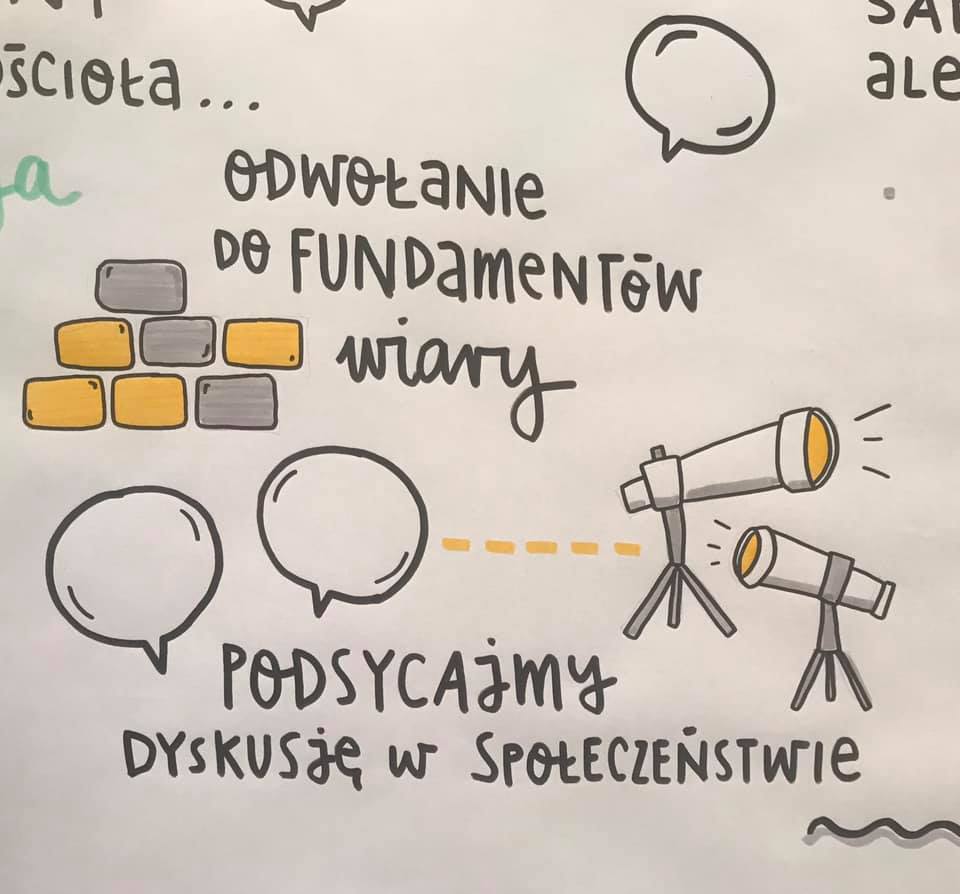 ościoła...
ale
ODWOŁANIE
DO FUNDAMENTÓW
wiary
PODSYCAJMY
DYSKUSJĘ W SPOŁECZEŃSTWIE